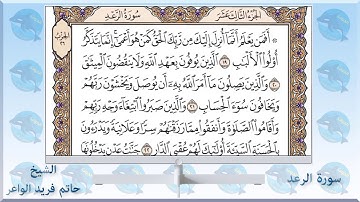 الجزء الثالث عشر
سورة الرعد
۞ أَفَمَن يَعْلَمُ أَنَّمَا أُنزِلَ إِلَيْكَ مِن رَّبِّكَ الْحَقُّ كَمَنْ هُوَ أَعْمَىٰ إِنَّمَا يَتَذَكَّرُ
أُولُوا الْأَلْبَابِ ١٩ الَّذِينَ يُوفُونَ بِعَهْدِ اللَّهِ وَلَا يَنقُضُونَ الْمِيثَاقَ
٢٠ وَالَّذِينَ يَصِلُونَ مَا أَمَرَ اللَّهُ بِهِ أَن يُوصَلَ وَيَخْشَوْنَ رَبَّهُمْ
وَيَخَافُونَ سُوءَ الْحِسَابِ ٢١ وَالَّذِينَ صَبَرُوا ابْتِغَاءَ وَجْهِ رَبِّهِمْ
وَأَقَامُوا الصَّلَاةَ وَأَنفَقُوا مِمَّا رَزَقْنَاهُمْ سِرًّا وَعَلَانِيَةً وَيَدْرَءُونَ
بِالْحَسَنَةِ السَّيِّئَةَ أُولَٰئِكَ لَهُمْ عُقْبَى الدَّارِ ٢٢ جَنَّاتُ عَدْنٍ يَدْخُلُونَهَا
الحزب
٢٦
سورة الرعد
الشيخ
حاتم فريد الواعر